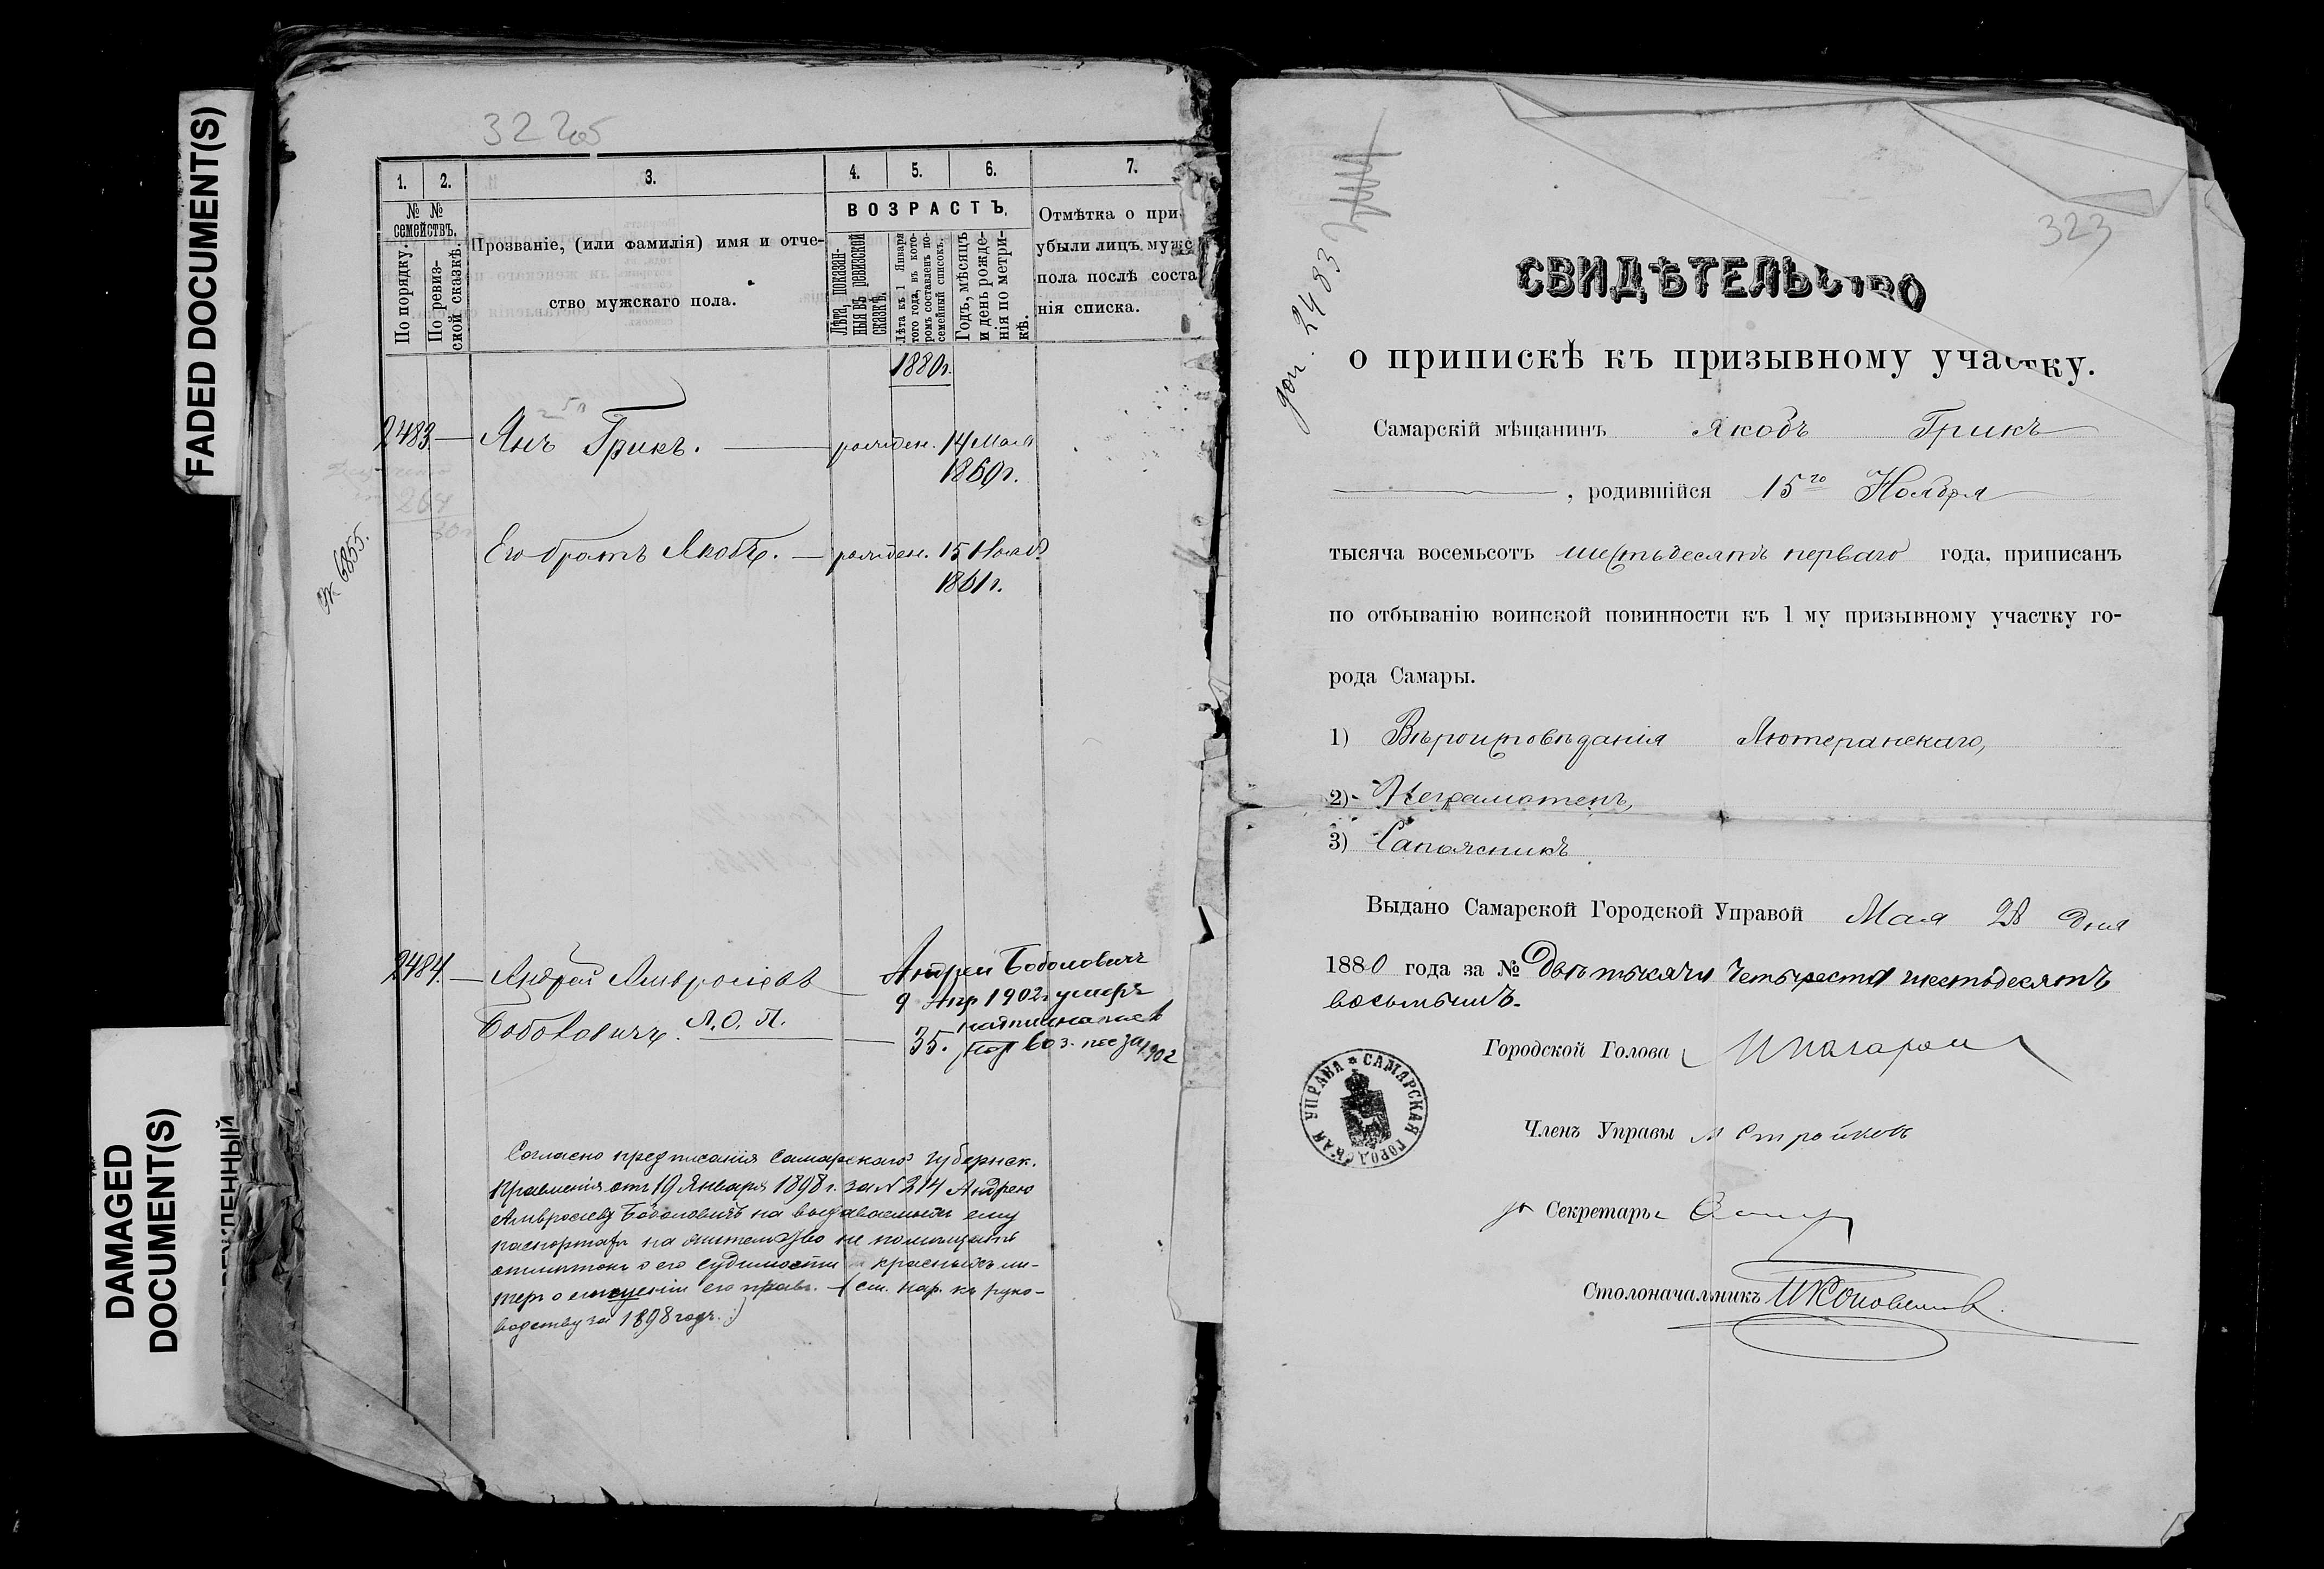 FADED DOCUMENT(S)
DAMAGED
DOCUMENT(S)
322об
1. 2. 3. 4. 5. 6. 7.
№ №
семействъ.
По порядку.
По ревиз-
ской сказкѣ.
Прозваніе, (или фамилія) имя и отче-
ство мужскаго пола.
ВОЗРАСТЪ.
Лѣта, показан-
ныя въ ревизской
сказкѣ.
Лѣта къ 1 Января
того года, въ кото-
ромъ составленъ по-
семейный списокъ.
Годъ, мѣсяцъ
и день рожде-
нія по метри-
кѣ.
Отмѣтка о при
убыли лицъ мужс
пола послѣ соста
нія списка.
1880г.
2483 — Янъ Грикъ. — рожден. 14 Мая
1860г.
264
№ 6855.
Его братъ Якобъ. — рожден. 15 Нояб
1861г.
2484. — Андрей Амвросіевъ
Боболовичъ. Л.О.П. — 35.
Андрей Боболовичъ
9 Апр 1902г умеръ
1902
Согласно предписанія Самарскаго губернск.
Правленія отъ 19 Января 1898 г. за № 214 Андрею
Амвросіеву Боболовичъ на выдаваемыхъ ему
паспортахъ на жительство не помещать
отметокъ о его судимости красныхъ ли-
теръ о его правъ. — (см. нар. къ руко-
водству за 1898 годъ.)
323
2483
СВИДѢТЕЛЬСТВО
о припискѣ къ призывному участку.
Самарскій мѣщанинъ Якобъ Грикъ
, родившійся 15го Ноября
тысяча восемьсотъ шестьдесятъ перваго года, приписанъ
по отбыванію воинской повинности къ 1 му призывному участку го-
рода Самары.
1) Вѣроисповѣданія Лютеранскаго,
2) Неграмотенъ,
3) Сапожникъ
Выдано Самарской Городской Управой Мая 28 дня
1880 года за № Двѣ тысячи четыреста шестьдесятъ
восьмымъ.
Городской Голова
Членъ Управы
Секретарь
Столоначальникъ
САМАРСКАЯ ГОРОДСКАЯ УПРАВА